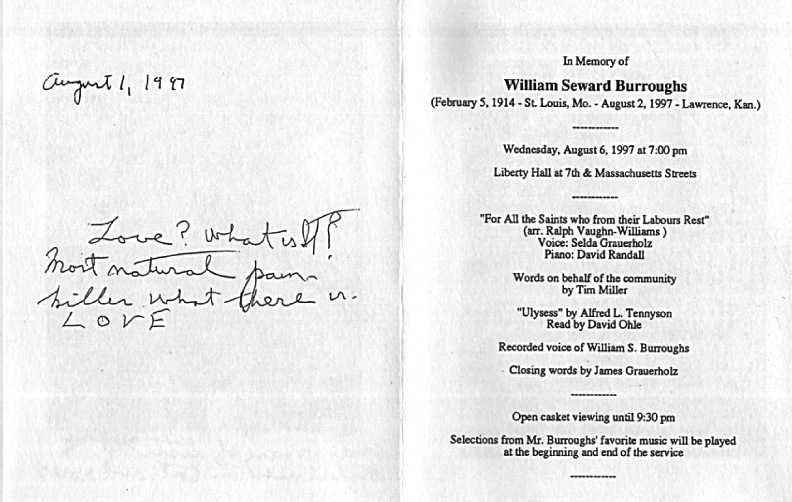 August 1, 1997
Love? What is It?
Most natural pain-
killer what there is.
LOVE
In Memory of
William Seward Burroughs
(February 5, 1914 - St. Louis, Mo. - August 2, 1997 - Lawrence, Kan.)
------------
Wednesday, August 6, 1997 at 7:00 pm
Liberty Hall at 7th & Massachusetts Streets
------------
"For All the Saints who from their Labours Rest"
(arr. Ralph Vaughn-Williams )
Voice: Selda Grauerholz
Piano: David Randall
Words on behalf of the community
by Tim Miller
"Ulysess" by Alfred L. Tennyson
Read by David Ohle
Recorded voice of William S. Burroughs
Closing words by James Grauerholz
------------
Open casket viewing until 9:30 pm
Selections from Mr. Burroughs' favorite music will be played
at the beginning and end of the service
------------